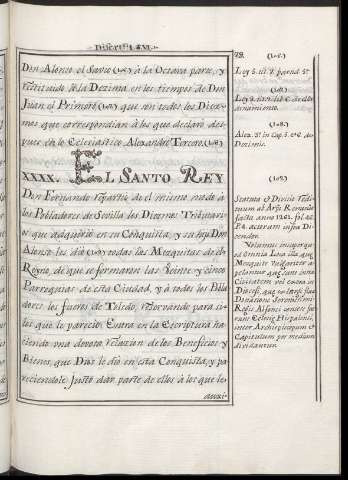 Discurso LXVI.
Don Alonso el Santo (106) à la Octava parte, y
restituido la Dezima, en los tiempos de Don
Juan el Primero (107) que son todos los Diez-
mos que correspondian à los que declaró des-
pues en lo Eclesiastico Alexandro Tercero (108)
XXXX. EL SANTO REY
Don Fernando repartió de el mismo modo à
los Pobladores de Sevilla los Diezmos Tributarios
que adquirió en su Conquista, y su hijo Don
Alonso les dio (109) todas las Mezquitas de el
Reyno, de que se formaron las Veinte y cinco
Parroquias de esta Ciudad, y à todos los Pobla-
dores los fueros de Toledo, reservando para si
los que le pareció. Entra en la Escriptura ha-
ciendo una devota relacion de los Beneficios y
Bienes, que Dios le dió en esta Conquista, y pa-
reciendole justo dar parte de ellos à los que le
79.
Ley 5. tit.
(107.)
(108.)
Alex. 3º in Cap.
Decimis.
(109.)
Statuta
facta anno 1261. fol.
Volumus
omnia loca illa, que
Mezquite vulgariter a-
pelantur, que sunt intra
Civitatem vel extra in
Diocesi,
Donatione Serenissimi
Regis Alfonsi
runt Eclesię Hispalensi,
inter Archiepiscopum et
Capitulum per medium
dividantur.